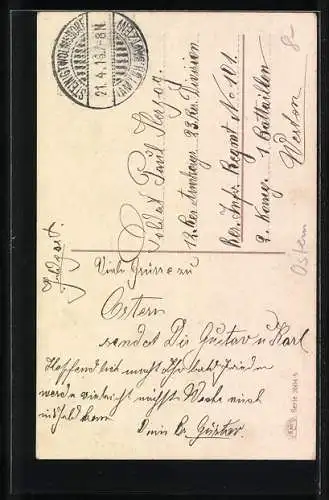 STEINIGTWOLMSDORF
21. 4. 16. 7-8 N.
Feldpost.
Soldat Paul Herzog
12. Res. Armkorps 23. Res. Division
Res. Inf. Regmt No 101.
2. Komp. 1. Battaillon
Westen
Ostern
Viele Grüsse zu
Ostern
sendet Dir Gustav u Karl
Hoffendlich macht ihr bald Frieden
werde vieleicht nächste Woche mich
Dein Br. Gustav.
Serie 3604/5